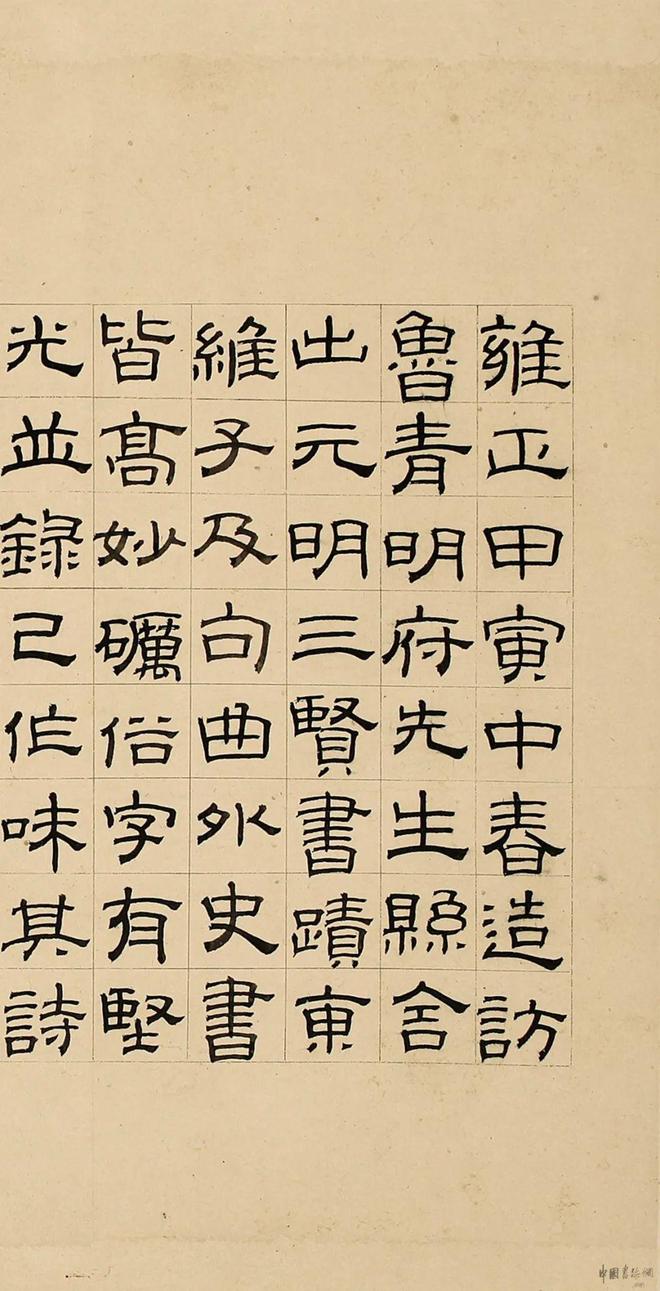 雍正甲寅中春造訪
魯青明府先生縣舍
出元明三賢書蹟東
維子及句曲外史書
皆高妙礪俗字有堅
光並錄己作味其詩
中國書法網